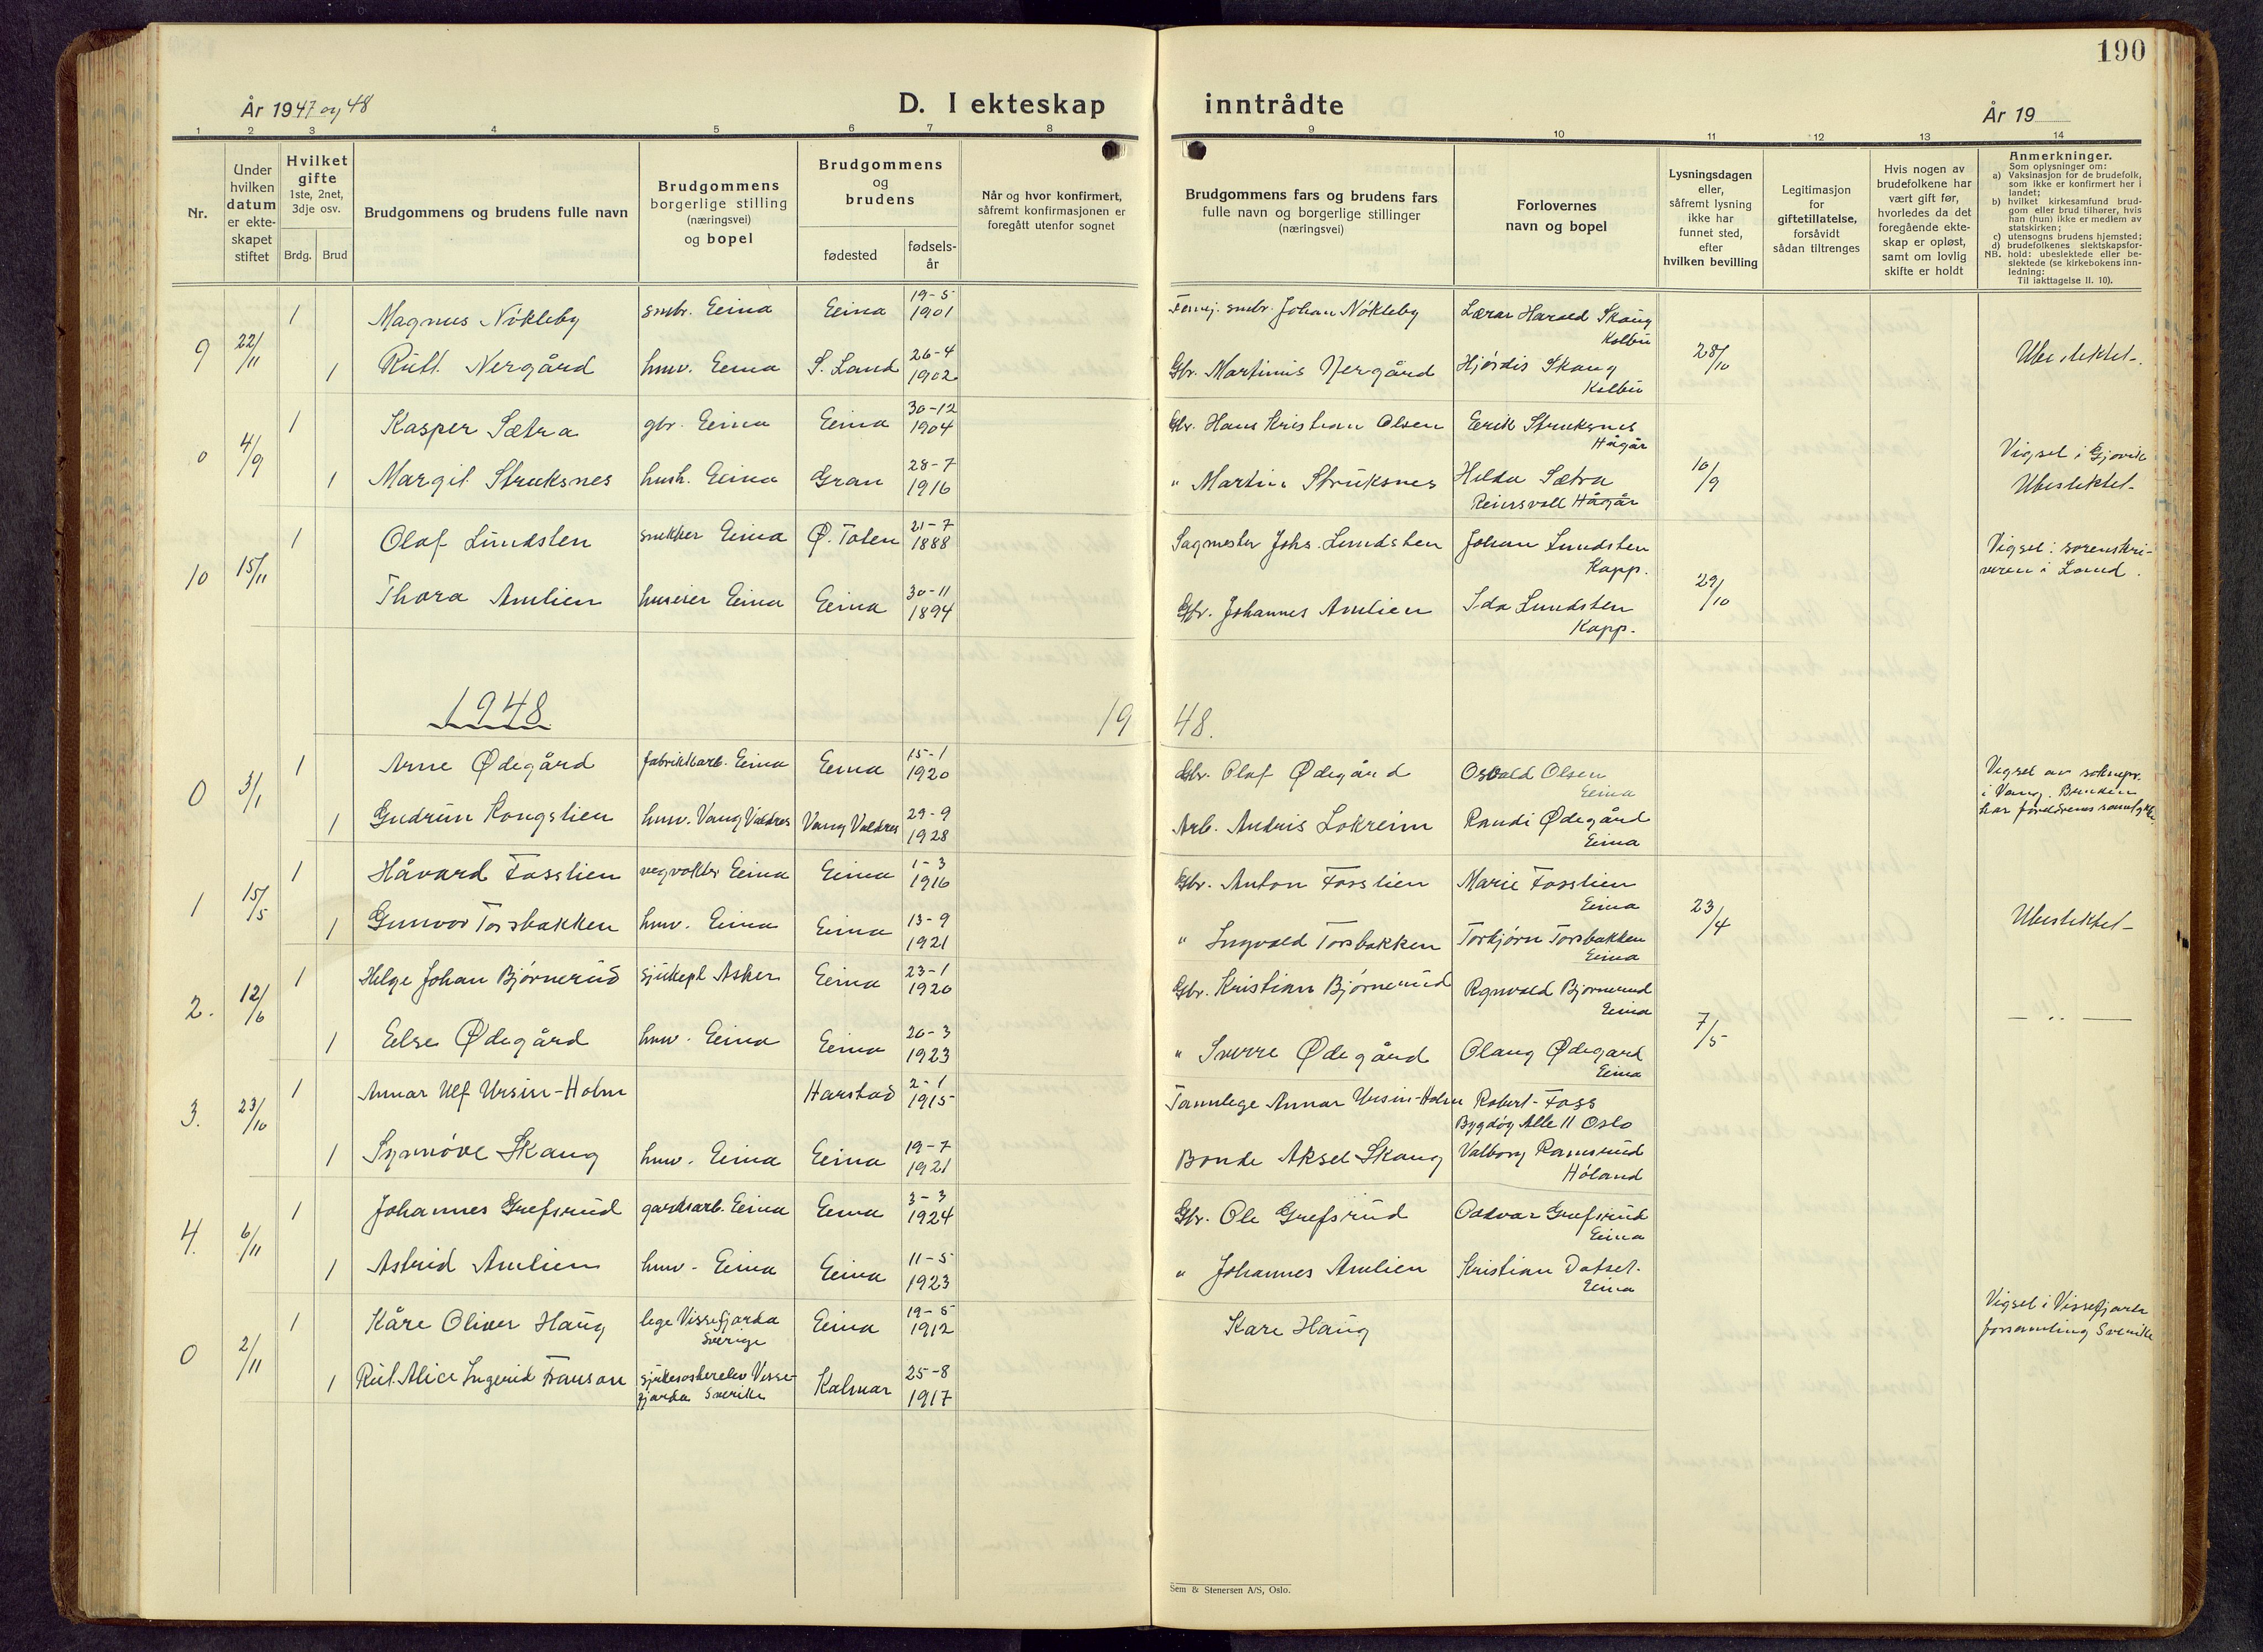 190
År 1947 og 48
D. I ekteskap inntrådte
År 19
1 2 3 4 5 6 7 8 9 10 11 12 13 14
Nr.
Under hvilken datum er ekteskapet stiftet
Hvilket gifte 1ste, 2net, 3dje osv.
Brdg. Brud
Brudgommens og brudens fulle navn
Brudgommens borgerlige stilling (næringsvei) og bopel
Brudgommens og brudens
fødested
fødselsår
Når og hvor konfirmert, såfremt konfirmasjonen er foregått utenfor sognet
Brudgommens fars og brudens fars fulle navn og borgerlige stillinger (næringsvei)
Forlovernes navn og bopel
Lysningsdagen eller, såfremt lysning ikke har funnet sted, efter hvilken bevilling
Legitimasjon for giftetillatelse, forsåvidt sådan tiltrenges
Hvis nogen av brudefolkene har vært gift før, hvorledes da det foregående ekteskap er opløst, samt om lovlig skifte er holdt
Anmerkninger.
Som oplysninger om:
a) Vaksinasjon for de brudefolk, som ikke er konfirmert her i landet;
b) hvilket kirkesamfund brudgom eller brud tilhører, hvis han (hun) ikke er medlem av statskirken;
c) utensogns brudens hjemsted;
d) brudefolkenes slektskapsforhold: ubeslektede eller beslektede (se kirkebokens innledning:
NB.
Til iakttagelse II. 10).
9 22/11 1 Magnus Nökleby smbr. Eina Eina 19-5 1901 smbr. Johan Nökleby Lærar Harald Skaug Kolbu 28/10 Ubeslektet.
1 Rutt Nergård husv. Eina S. Land 26-4 1902 Gbr. Martinus Nergård Hjördis Skaug Kolbu
0 4/9 1 Kasper Sætra gbr. Eina Eina 30-12 1904 Gbr. Hans Kristian Olsen Eerik Struksnes Hågår 10/9 Vigsel i Gjøvik
1 Margit Struksnes hush. Eina Gran 28-7 1916 " Martin Struksnes Hilda Sætra Reinsvoll Hågår Ubeslektet-
10 15/11 1 Olaf Lundsten snekker Eina Ø. Toten 21-7 1888 Sagmester Johs. Lundsten Johan Lundsten Kapp. 29/10 Vigsel: sorenskriveren i Land.
Thora Amlien Eina Eina 30-11 1894 Gbr. Johannes Amlien Ida Lundsten Kapp.
1948 19 48.
0 3/1 1 Arne Ødegård fabrikkarb. Eina Eina 15-1 1920 Gbr. Olaf Ødegård Osvald Olsen Eina Vigsel av soknepr. i Vang. Bruden har foreldrenes samtykke.
1 Gudrun Kongslien husv. Vang Valdres Vang Valdres 29-9 1928 Arb. Andris Lokreim Randi Ødegård Eina
1 15/5 1 Håvard Fosslien vegvokter Eina Eina 1-3 1916 Gbr. Anton Fosslien Marie Fosslien Eina 23/4 Ubeslektet-
1 Gunvor Torsbakken husv. Eina Eina 13-9 1921 " Ingvald Torsbakken Torbjørn Torsbakken Eina
2. 12/6 1 Helge Johan Bjørnerud sjukepl Asker Eina 23-1 1920 Gbr. Kristian Bjørnerud Ragnvald Bjørnerud Eina 7/5 — " —
1 Eelse Ødegård husv. Eina Eina 20-3 1923 " Sverre Ødegård Olaug Ødegard Eina
3. 23/10 1 Annar Ulf Ursin-Holm Harstad 2-1 1915 Tannlege Annar Ursin-Holm Robert Foss Bygdøy Alle 11 Oslo
1 Synnöve Skaug husv. Eina Eina 19-7 1921 Bonde Aksel Skaug Valborg Ramsrud Höland
4. 6/11 1 Johannes Grefsrud gardsarb. Eina Eina 3-3 1924 Gbr. Ole Grefsrud Oddvar Grefsrud Eina
1 Astrid Amlien husv. Eina Eina 11-5 1923 " Johannes Amlien Kristian Dotset. Eina
0 2/11 1 Kåre Oliver Haug lege Vissefjarda Sverige Eina 19-5 1912 Kare Haug Vigsel i Vissefjarda forsamling Sverike
1 Rut Alice Ingerid Franson Vissefjarda Sverike Kalmar 25-8 1917
Sem & Stenersen A/S, Oslo.